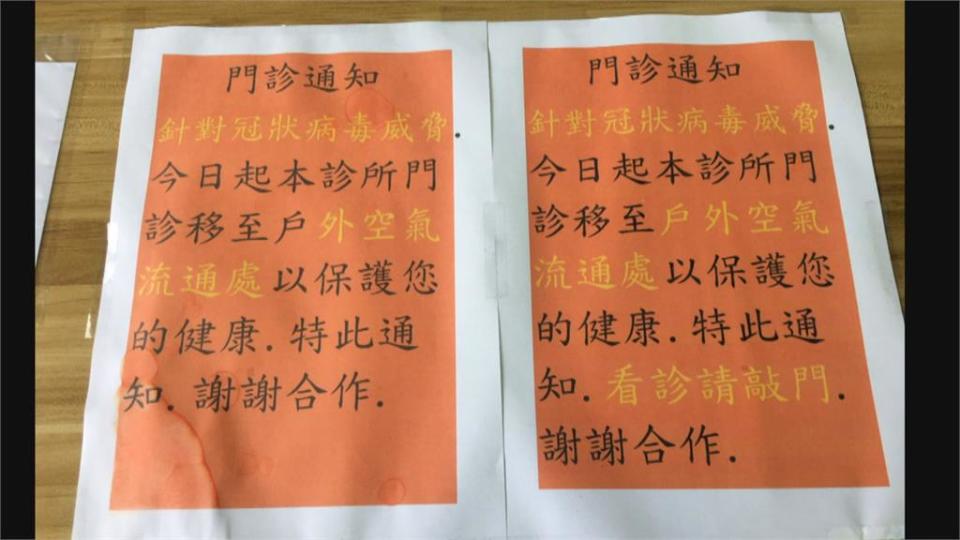 門診通知
針對冠狀病毒威脅.
今日起本診所門
診移至戶外空氣
流通處以保護您
的健康.特此通
知.謝謝合作.
門診通知
針對冠狀病毒威脅.
今日起本診所門
診移至戶外空氣
流通處以保護您
的健康.特此通
知.看診請敲門.
謝謝合作.